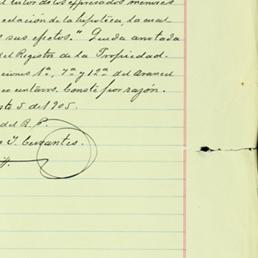 tutor de los expresados menores
celación de la hipoteca, la cual
sus efectos." Queda anotada
el Registro de la Propiedad.
ciones 1ª, 7ª y 12ª del arancel
centavos. Conste por razón.
5 de 1905.
del R. P.
J. Cervantes.